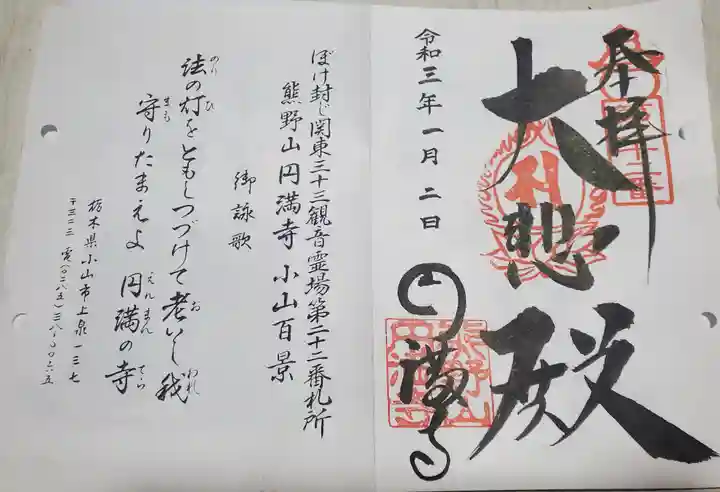 奉拝
大悲殿
円満寺
令和三年一月二日
ぼけ封じ関東三十三観音霊場第二十二番札所
熊野山円満寺 小山百景
御詠歌
法の灯をともしつづけて老いし我
のり ひ お われ
守りたまえよ 円満の寺
まも えんまん てら
栃木県小山市上泉一三七